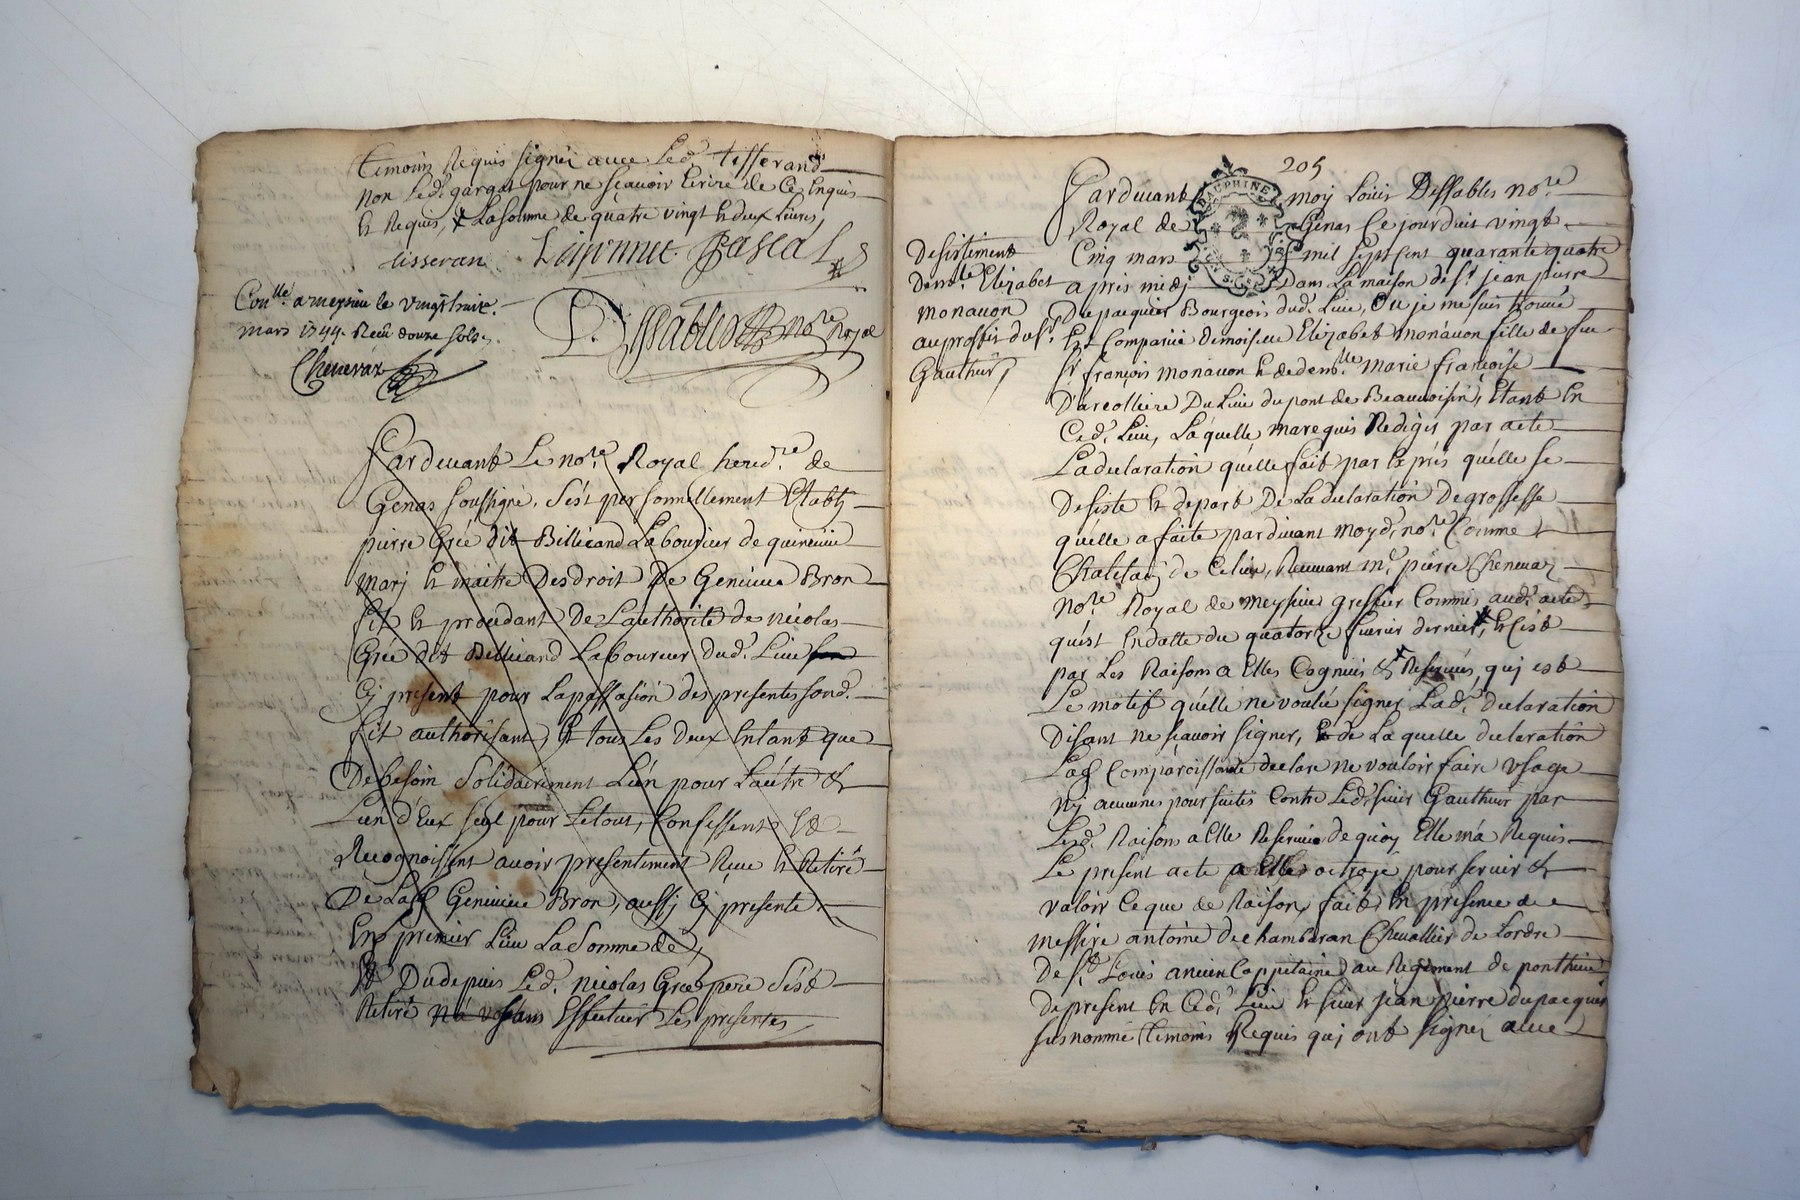 temoins Requis signés avec Led. tisserand
non Led. gargat pour ne sçavoir Ecrire de Ce Enquis
Et Requis, La somme de quatre vingt Et deux Livres
tisseran Pascal
Conlle. a meyzieu le vingt huit
mars 1744. Reçu douze sols.
Chenevaz
Dessables nore Royal
Pardevant Le nore. Royal hered.re de
Genas soussigné, s'est personnellement Etably
pierre Grée dit Billicand Laboureur de
mary Et maitre Des droit De Genevieve Bron
fit Et procedant De L'authorité de nicolas
Grée dit Billicand Laboureur dud. Lieu
Cy present pour La passasion des presentes sond.
fit authorisant, Et tous Les deux Entant que
De besoin Solidairement L'un pour L'autre &
L'un d'Eux seul pour Le tout, Confessent Et
Recognoissent avoir presentement Reçu Et Retiré
De Lad. Genevieve Bron, aussy Cy presente
En premier Lieu La Somme de
Et Du depuis Led. nicolas Grée pere s'est
Retiré Effectuer Les presentes
205
DAUPHINE
Pardevant moy Louis Dessables nore
Royal de Genas Ce jourduit vingt
Cinq mars mil sept cent quarante quatre
apres midy Dans La maison de sr. jean pierre
Dupacquier Bourgeois dud. Lieu, Ou je me suis trouvé
Desistement
Demlle. Elizabet
monavon
au proffit du sr.
Gauthier
Est Comparüe Demoiselle Elizabet monavon fille de feu
sr. françois monavon & de demlle. marie françoise
D'arcolliere Du Lieu du pont de Beauvoisin, Etant En
Ced. Lieu, Laquelle ma requis Rediger par acte
La declaration qu'elle fait par Exprés qu'elle se
Desiste Et depart De La declaration De grossesse
qu'elle a faite pardevant moyd. nore. Comme
Chatelain de Ce lieu, Recevant me. pierre Chenevaz
nore Royal de meyzieu greffier Commis aud. acte
qu'est En datte du quatorze fevrier dernier, Et C'est
par Les Raisons a Elles Cognues & Reservés, quy est
Le motif qu'elle ne voulu signer Lad. declaration
Disant ne sçavoir signer, & de Laquelle declaration
Lad. Comparoissante declare ne vouloir faire Usage
ny aucunes poursuites Contre Led. sieur Gauthier par
Lesd. Raisons a Elle Reservée de quoy Elle m'a Requis
Le present acte a Elle octroyé pour servir &
valoir Ce que de Raison, fait En presence de
messire antoine de chambaran Chevallier de Lordre
De st. Louis ancien Cappitaine au Regiment de ponthieu
de present En Ced. Lieu Et sieur jean pierre dupacquier
susnommé temoins Requis quy ont signé avec